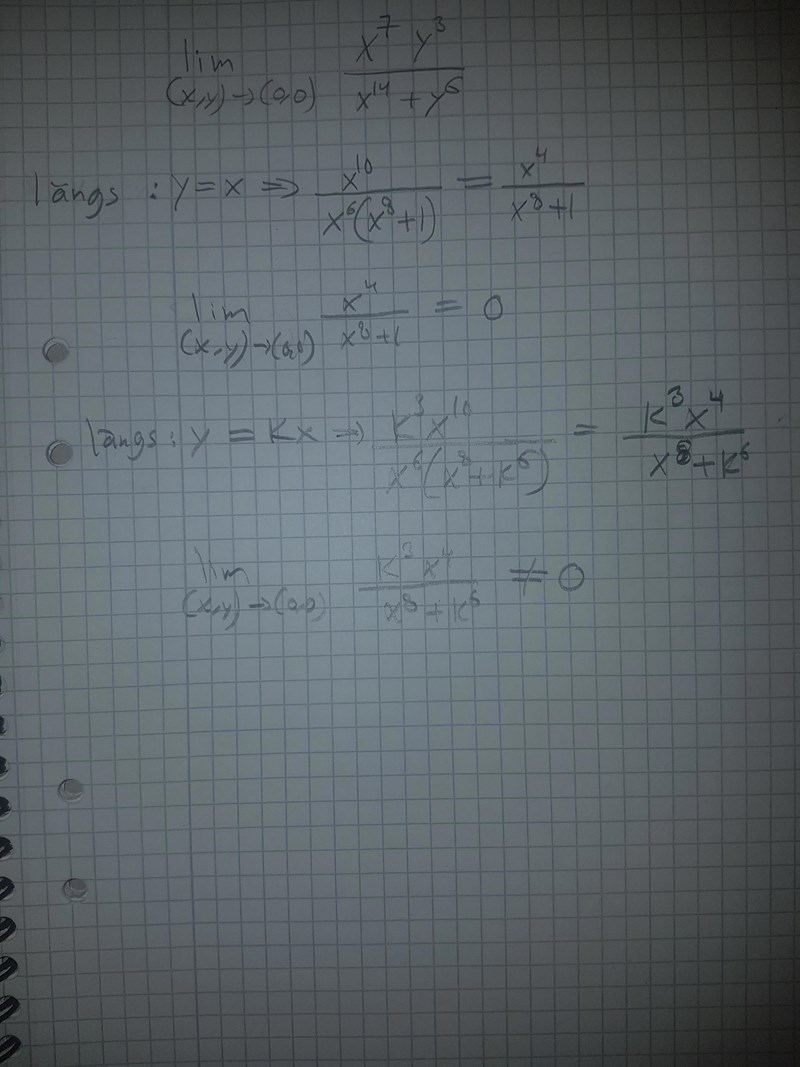 lim (x,y)→(0,0) x⁷ y³ / x¹⁴ + y⁶
längs : y = x ⇒ x¹⁰ / x⁶(x⁸+1) = x⁴ / x⁸+1
lim (x,y)→(0,0) x⁴ / x⁸+1 = 0
längs : y = kx → k³x¹⁰ / x⁶(x⁸+k⁶) = k³x⁴ / x⁸+k⁶
lim (x,y)→(0,0) k³x⁴ / x⁸+k⁶ ≠ 0